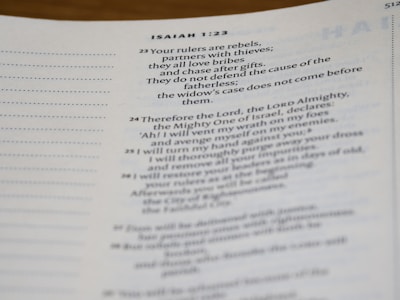 512
ISAIAH 1:23
23 Your rulers are rebels,
partners with thieves;
they all love bribes
and chase after gifts.
They do not defend the cause of the
fatherless;
the widow's case does not come before
them.
24 Therefore the Lord, the LORD Almighty,
the Mighty One of Israel, declares:
'Ah! I will vent my wrath on my foes
and avenge myself on my enemies.
25 I will turn my hand against you;
I will thoroughly purge away your dross
and remove all your impurities.
26 I will restore your leaders as in days of old,
your rulers as at the beginning.
Afterwards you will be called
the City of Righteousness,
the Faithful City.'
27 Zion will be delivered with justice,
her penitent ones with righteousness.
28 But rebels and sinners will both be
broken,
and those who forsake the LORD will
perish.